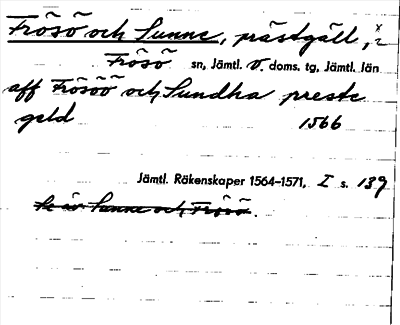 Frösö och Sunne, prästgäll,
Frösö sn, Jämtl. v. doms. tg, Jämtl. län
aff Frösöö och Sundha preste
geld 1566
Jämtl. Räkenskaper 1564-1571, I s. 139
Se äv. Sunne och Frösö.